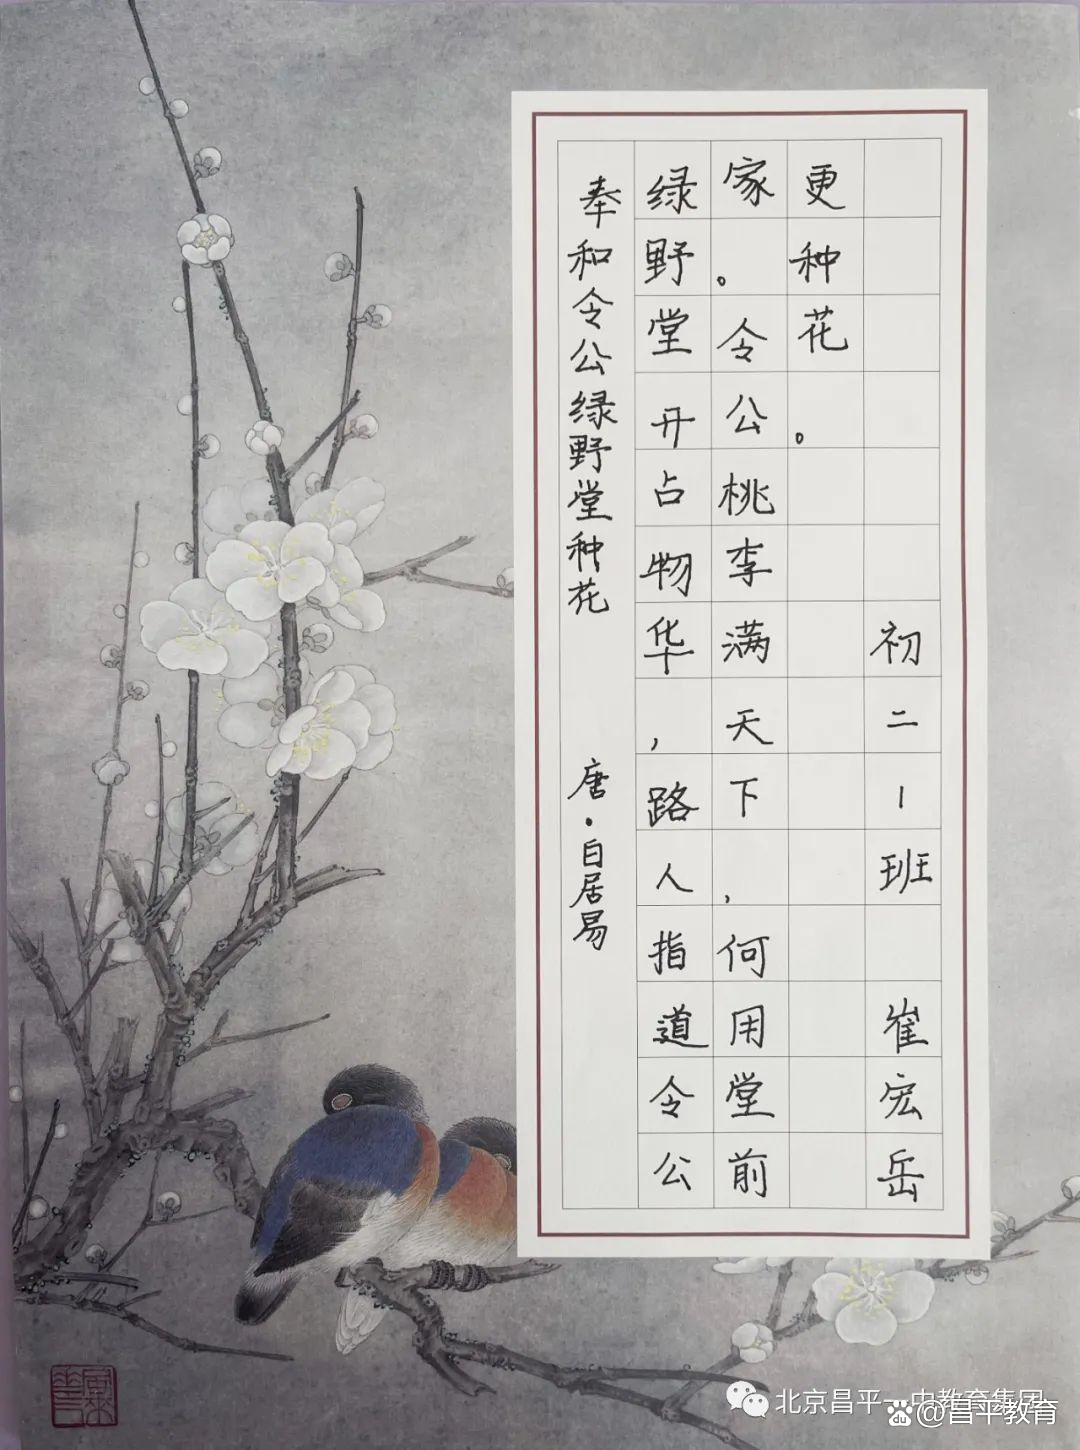 奉和令公绿野堂种花 唐·白居易
绿野堂开占物华,路人指道令公
家。令公桃李满天下,何用堂前
更种花。
初二1班 崔宏岳
北京昌平一中教育集团
@昌平教育